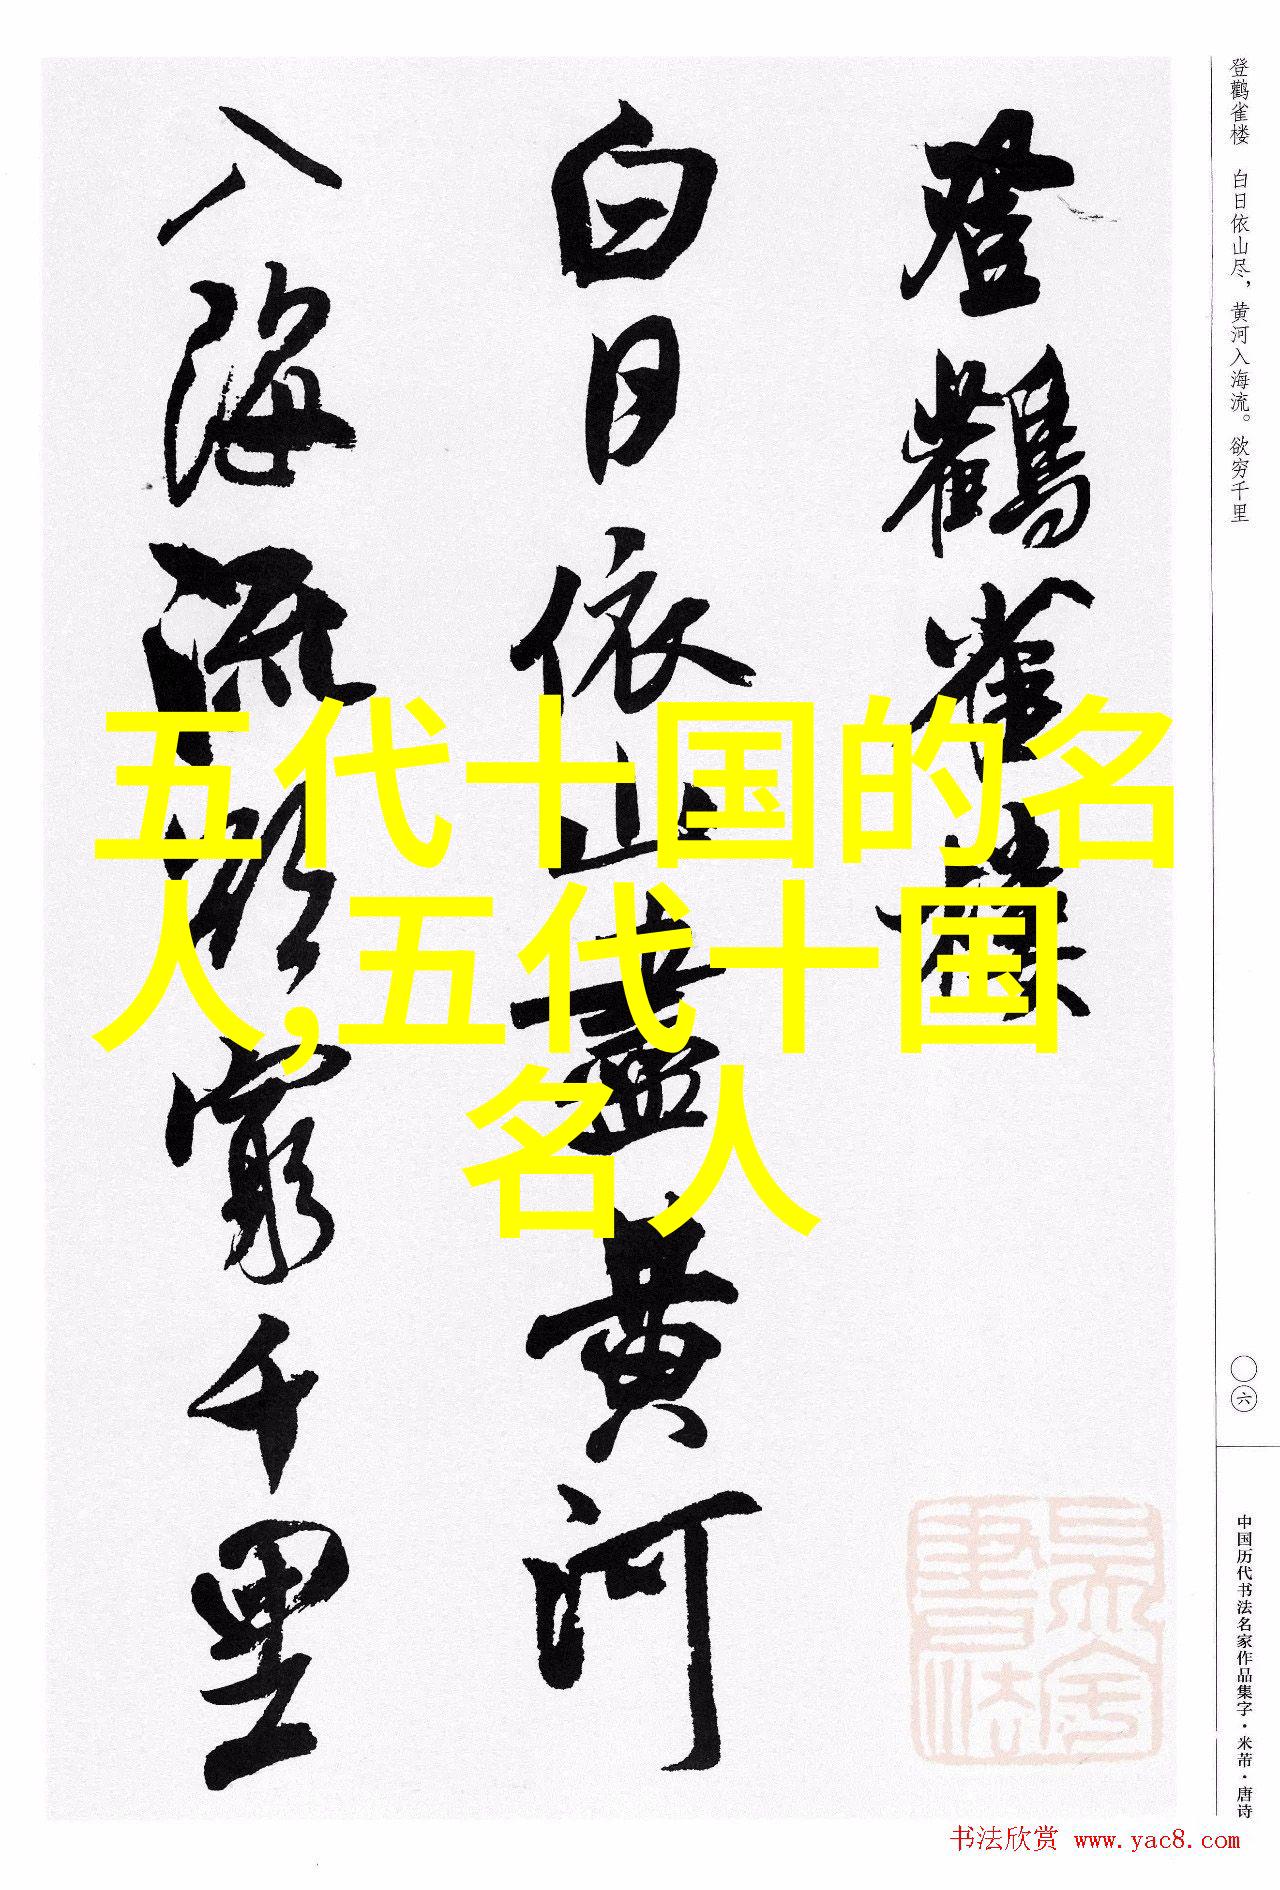 登鹳雀楼
白日依山盡黄河
入海流欲窮千里
五代十国的名
人,五代十国
名人
登鹳雀楼 白日依山尽，黄河入海流。欲穷千里
〇六
中国历代书法名家作品集字·米芾·唐诗
书法欣赏 www.yac8.com